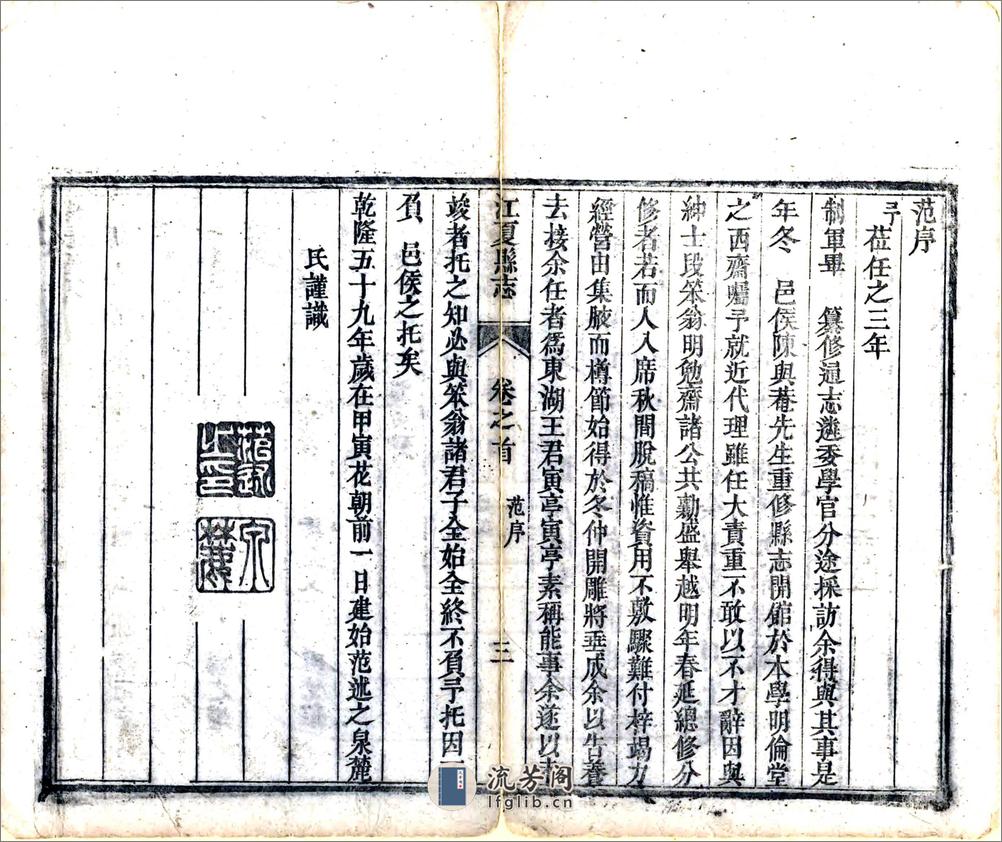 范序
予莅任之三年
制軍畢　纂修通志遴委學官分途採訪余得與其事是
年冬　邑侯陳與菴先生重修縣志開館於本學明倫堂
之西齋屬予就近代理雖任大責重不敢以不才辭因與
紳士段笨翁明勉齋諸公共勷盛舉越明年春延總修分
修者若而人入席秋間脫稿惟資用不敷驟難付梓竭力
經營由集腋而樽節始得於冬仲開雕將垂成余以告養
去接余任者爲東湖王君寅亭寅亭素稱能事余遂以未
江夏縣志
卷之首
范序
三
竣者托之知必與笨翁諸君子全始全終不負予托因
負　邑侯之托矣
乾隆五十九年歲在甲寅花朝前一日建始范述之泉麓
氏謹識
之印
泉麓
流芳阁
lfglib.cn